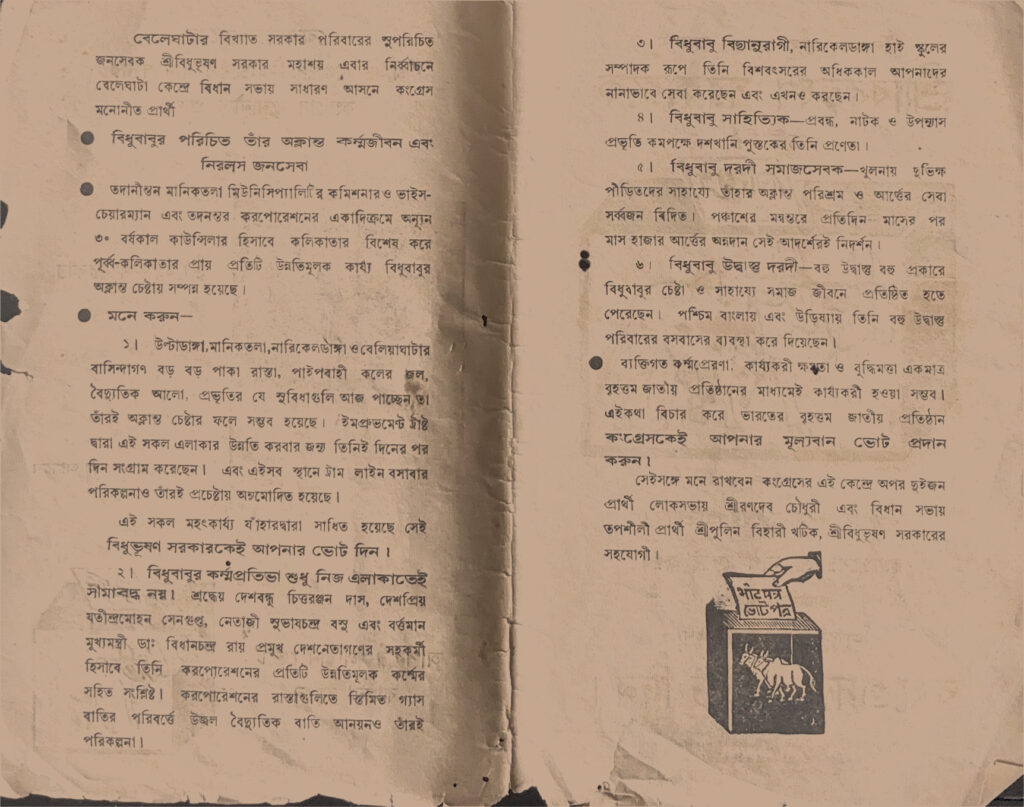 বেলেঘাটার বিখ্যাত সরকার পরিবারের সুপরিচিত
জনসেবক শ্রীবিধুভূষণ সরকার মহাশয় এবার নির্ব্বাচনে
বেলেঘাটা কেন্দ্রে বিধান সভায় সাধারণ আসনে কংগ্রেস
মনোনীত প্রার্থী
● বিধুবাবুর পরিচিত তাঁর অক্লান্ত কর্ম্মজীবন এবং
নিরলস জনসেবা
● তদানীন্তন মানিকতলা মিউনিসিপ্যালিটির কমিশনার ও ভাইস-
চেয়ারম্যান এবং তদনন্তর করপোরেশনের একাদিক্রমে অন্যূন
৩০ বর্ষকাল কাউন্সিলার হিসাবে কলিকাতার বিশেষ করে
পূর্ব্ব-কলিকাতার প্রায় প্রতিটি উন্নতিমূলক কার্য্য বিধুবাবুর
অক্লান্ত চেষ্টায় সম্পন্ন হয়েছে।
● মনে করুন—
১। উল্টাডাঙ্গা, মানিকতলা, নারিকেলডাঙ্গা ও বেলিয়াঘাটার
বাসিন্দাগণ বড় বড় পাকা রাস্তা, পাইপবাহী কলের জল,
বৈদ্যুতিক আলো, প্রভৃতির যে সুবিধাগুলি আজ পাচ্ছেন, তা
তাঁরই অক্লান্ত চেষ্টার ফলে সম্ভব হয়েছে। ইমপ্রুভমেন্ট ট্রাষ্ট
দ্বারা এই সকল এলাকার উন্নতি করবার জন্য তিনিই দিনের পর
দিন সংগ্রাম করেছেন। এবং এইসব স্থানে ট্রাম লাইন বসাবার
পরিকল্পনাও তাঁরই প্রচেষ্টায় অনুমোদিত হয়েছে।
এই সকল মহৎকার্য্য যাঁহারদ্বারা সাধিত হয়েছে সেই
বিধুভূষণ সরকারকেই আপনার ভোট দিন।
২। বিধুবাবুর কর্ম্মপ্রতিভা শুধু নিজ এলাকাতেই
সীমাবদ্ধ নয়। শ্রদ্ধেয় দেশবন্ধু চিত্তরঞ্জন দাস, দেশপ্রিয়
যতীন্দ্রমোহন সেনগুপ্ত, নেতাজী সুভাষচন্দ্র বসু এবং বর্ত্তমান
মুখ্যমন্ত্রী ডাঃ বিধানচন্দ্র রায় প্রমুখ দেশনেতাগণের সহকর্মী
হিসাবে তিনি করপোরেশনের প্রতিটি উন্নতিমূলক কর্ম্মের
সহিত সংশ্লিষ্ট। করপোরেশনের রাস্তাগুলিতে স্তিমিত গ্যাস
বাতির পরিবর্ত্তে উজ্জল বৈদ্যুতিক বাতি আনয়নও তাঁরই
পরিকল্পনা।
৩। বিধুবাবু বিদ্যানুরাগী, নারিকেলডাঙ্গা হাই স্কুলের
সম্পাদক রূপে তিনি বিশবৎসরের অধিককাল আপনাদের
নানাভাবে সেবা করেছেন এবং এখনও করছেন।
৪। বিধুবাবু সাহিত্যিক—প্রবন্ধ, নাটক ও উপন্যাস
প্রভৃতি কমপক্ষে দশখানি পুস্তকের তিনি প্রণেতা।
৫। বিধুবাবু দরদী সমাজসেবক—খুলনায় দুর্ভিক্ষ
পীড়িতদের সাহায্যে তাঁহার অক্লান্ত পরিশ্রম ও আর্ত্তের সেবা
সর্ব্বজন বিদিত। পঞ্চাশের মন্বন্তরে প্রতিদিন মাসের পর
মাস হাজার আর্ত্তের অন্নদান সেই আদর্শেরই নিদর্শন।
৬। বিধুবাবু উদ্বাস্তু দরদী—বহু উদ্বাস্তু বহু প্রকারে
বিধুবাবুর চেষ্টা ও সাহায্যে সমাজ জীবনে প্রতিষ্ঠিত হতে
পেরেছেন। পশ্চিম বাংলায় এবং উড়িষ্যায় তিনি বহু উদ্বাস্তু
পরিবারের বসবাসের ব্যবস্থা করে দিয়েছেন।
● ব্যক্তিগত কর্ম্মপ্রেরণা, কার্য্যকরী ক্ষমতা ও বুদ্ধিমত্তা একমাত্র
বৃহত্তম জাতীয় প্রতিষ্ঠানের মাধ্যমেই কার্য্যকরী হওয়া সম্ভব।
এইকথা বিচার করে ভারতের বৃহত্তম জাতীয় প্রতিষ্ঠান
কংগ্রেসকেই আপনার মূল্যবান ভোট প্রদান
করুন।
সেইসঙ্গে মনে রাখবেন কংগ্রেসের এই কেন্দ্রে অপর দুইজন
প্রার্থী লোকসভায় শ্রীরণদেব চৌধুরী এবং বিধান সভায়
তপশীলী প্রার্থী শ্রীপুলিন বিহারী খটিক, শ্রীবিধুভূষণ সরকারের
সহযোগী।
ভোটপত্র